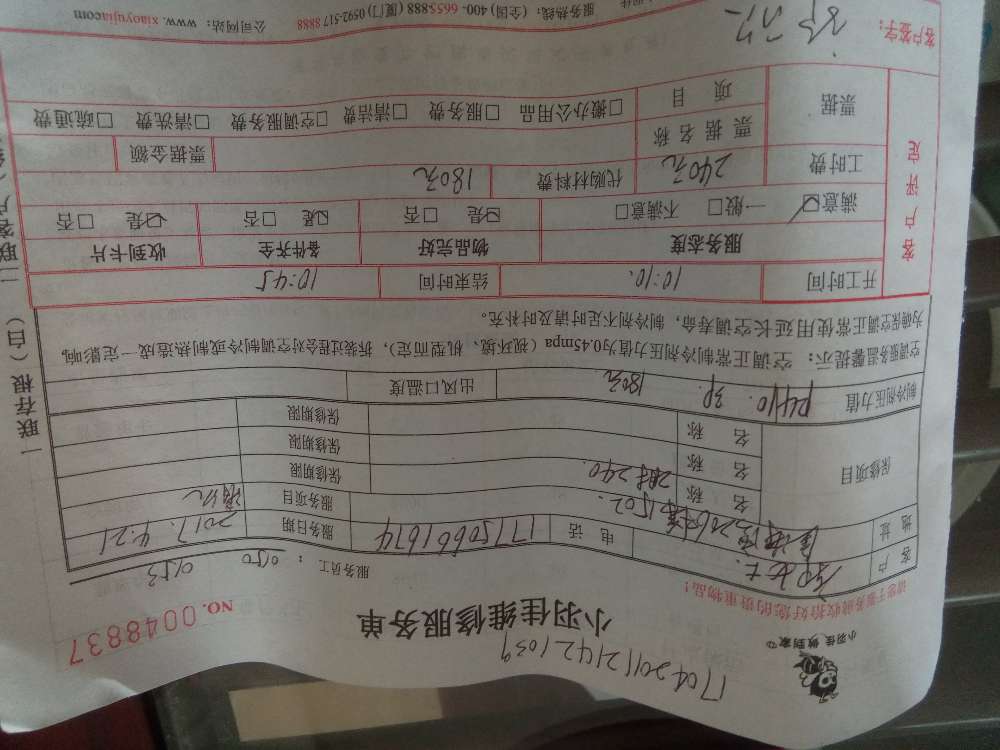 170420112142 1039
小羽佳 做到家
小羽佳维修服务单
NO. 0048837
请您于服务前收拾好您的贵重物品！
服务员工： 0150 0153
客户 女士 电话 17750661674 服务日期 2017.4.21
地址 1502 服务项目 清洗
保修项目 名称 2时240 保修期限
名称 保修期限
名称 保修期限
制冷剂压力值 R410. 3P 180元 出风口温度
空调服务温馨提示： 空调正常制冷剂压力值为0.45mpa（视环境、机型而定），拆装过程会对空调制冷或制热造成一定影响，
为确保空调正常使用延长空调寿命，制冷剂不足时请及时补充。
开工时间 10:10. 结束时间 10:45
客户评定 服务态度 物品完好 备件齐全 收到卡片
满意☑ 一般□ 不满意□ ☑是 □否 ☑是 □否 ☑是 □否
工时费 240元 代购材料费 180元
票据 票据名称 票据金额
项目 □搬办公用品 □服务费 □清洁费 □空调服务费 □清洗费 □疏通费
客户签字：
服务热线：（全国）400-6655888（厦门）0592-5178888 公司网站： www. xiaoyujia.com
一联存根（白） 二联客户